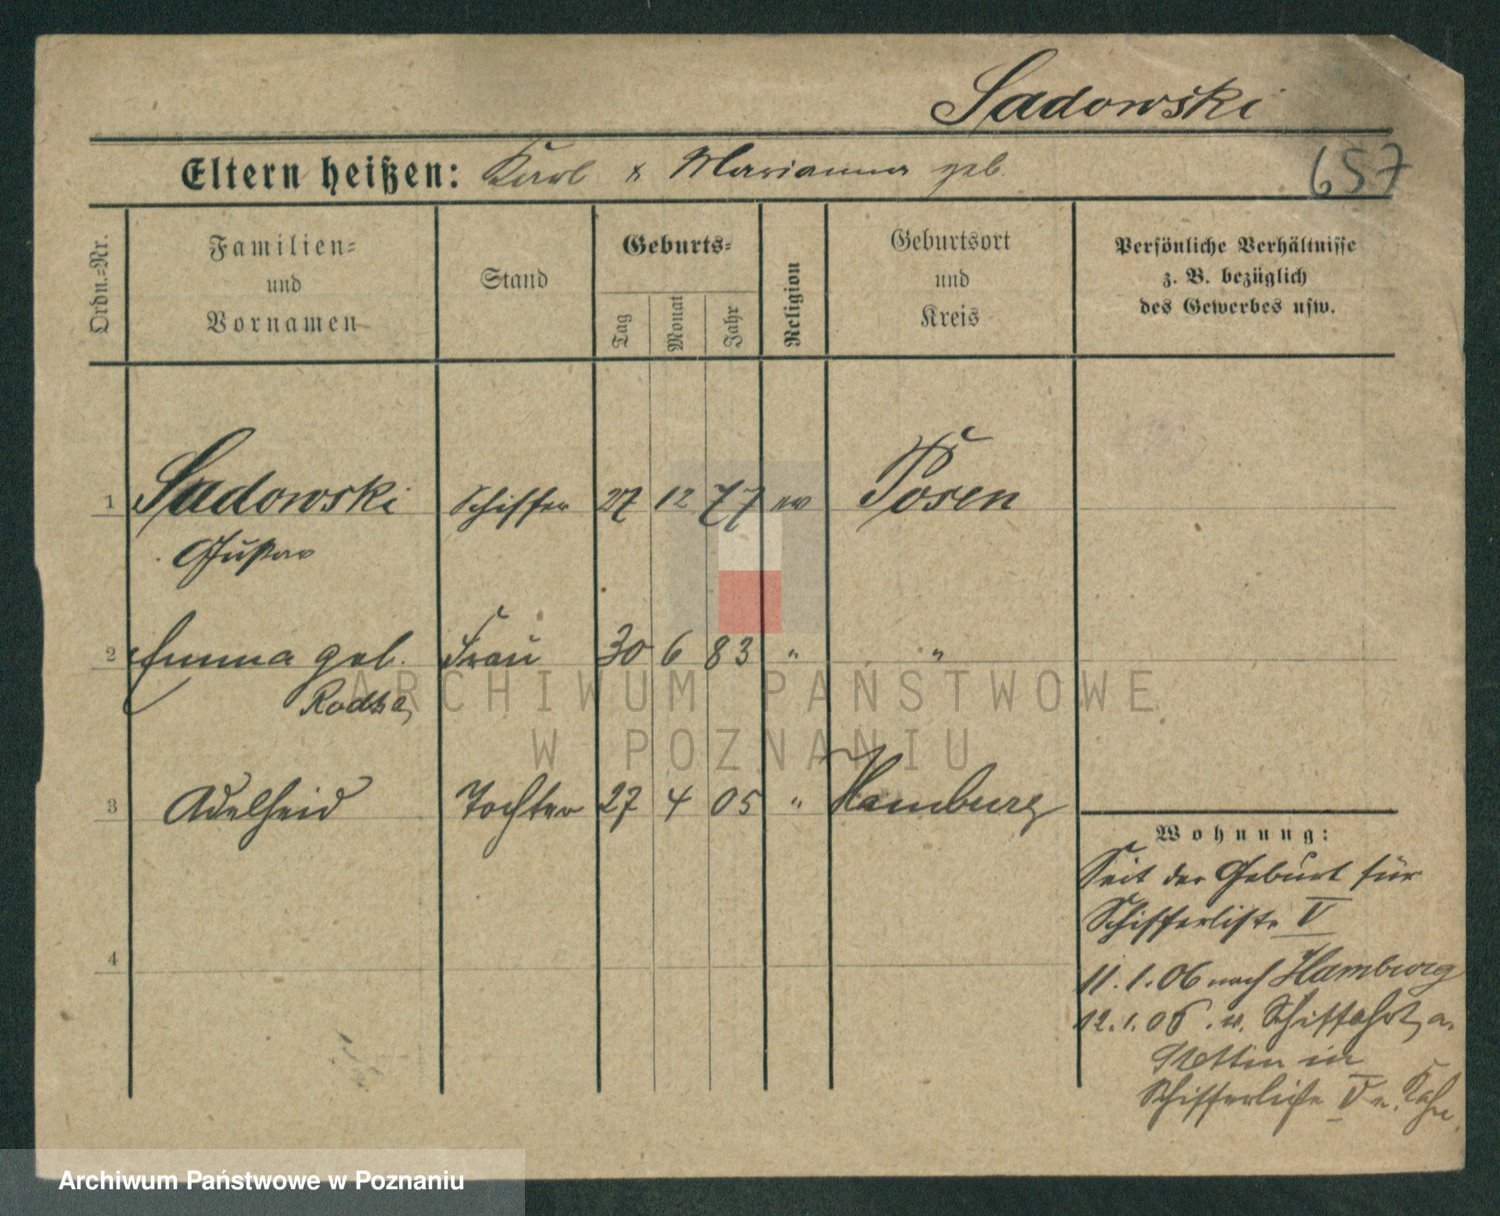 Sadowski
Eltern heißen: Karl & Marianna geb.
657
Ordn.-Nr.
Familien-
und
Vornamen
Stand
Geburts-
Tag
Monat
Jahr
Religion
Geburtsort
und
Kreis
Persönliche Verhältnisse
z. B. bezüglich
des Gewerbes usw.
1 Sadowski Schiffer 27 12 77 ev Posen
Gustav
2 Emma geb. Frau 30 6 83 " "
ARCHIWUM PAŃSTWOWE
W POZNANIU
3 Adelheid Tochter 27 4 05 " Hamburg
4
Wohnung:
Seit der Geburt für
Schifferliste V
11.1.06 nach Hamburg
12.1.06 v. Schiffahrt a.
Stettin in
Schifferliste V
Archiwum Państwowe w Poznaniu